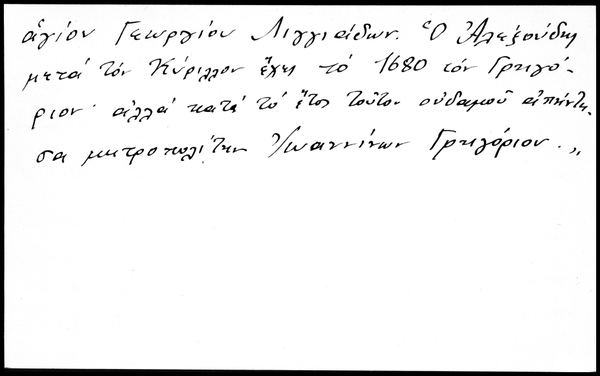 ἁγίου Γεωργίου Λιγγιάδων. Ὁ Ἀλεξούδης
μετά τόν Κύριλλον ἔχει τό 1680 τόν Γρηγό-
ριον· ἀλλά κατά τό ἔτος τοῦτο οὐδαμοῦ ἀπήντη-
σα μητροπολίτην Ἰωαννίνων Γρηγόριον.„